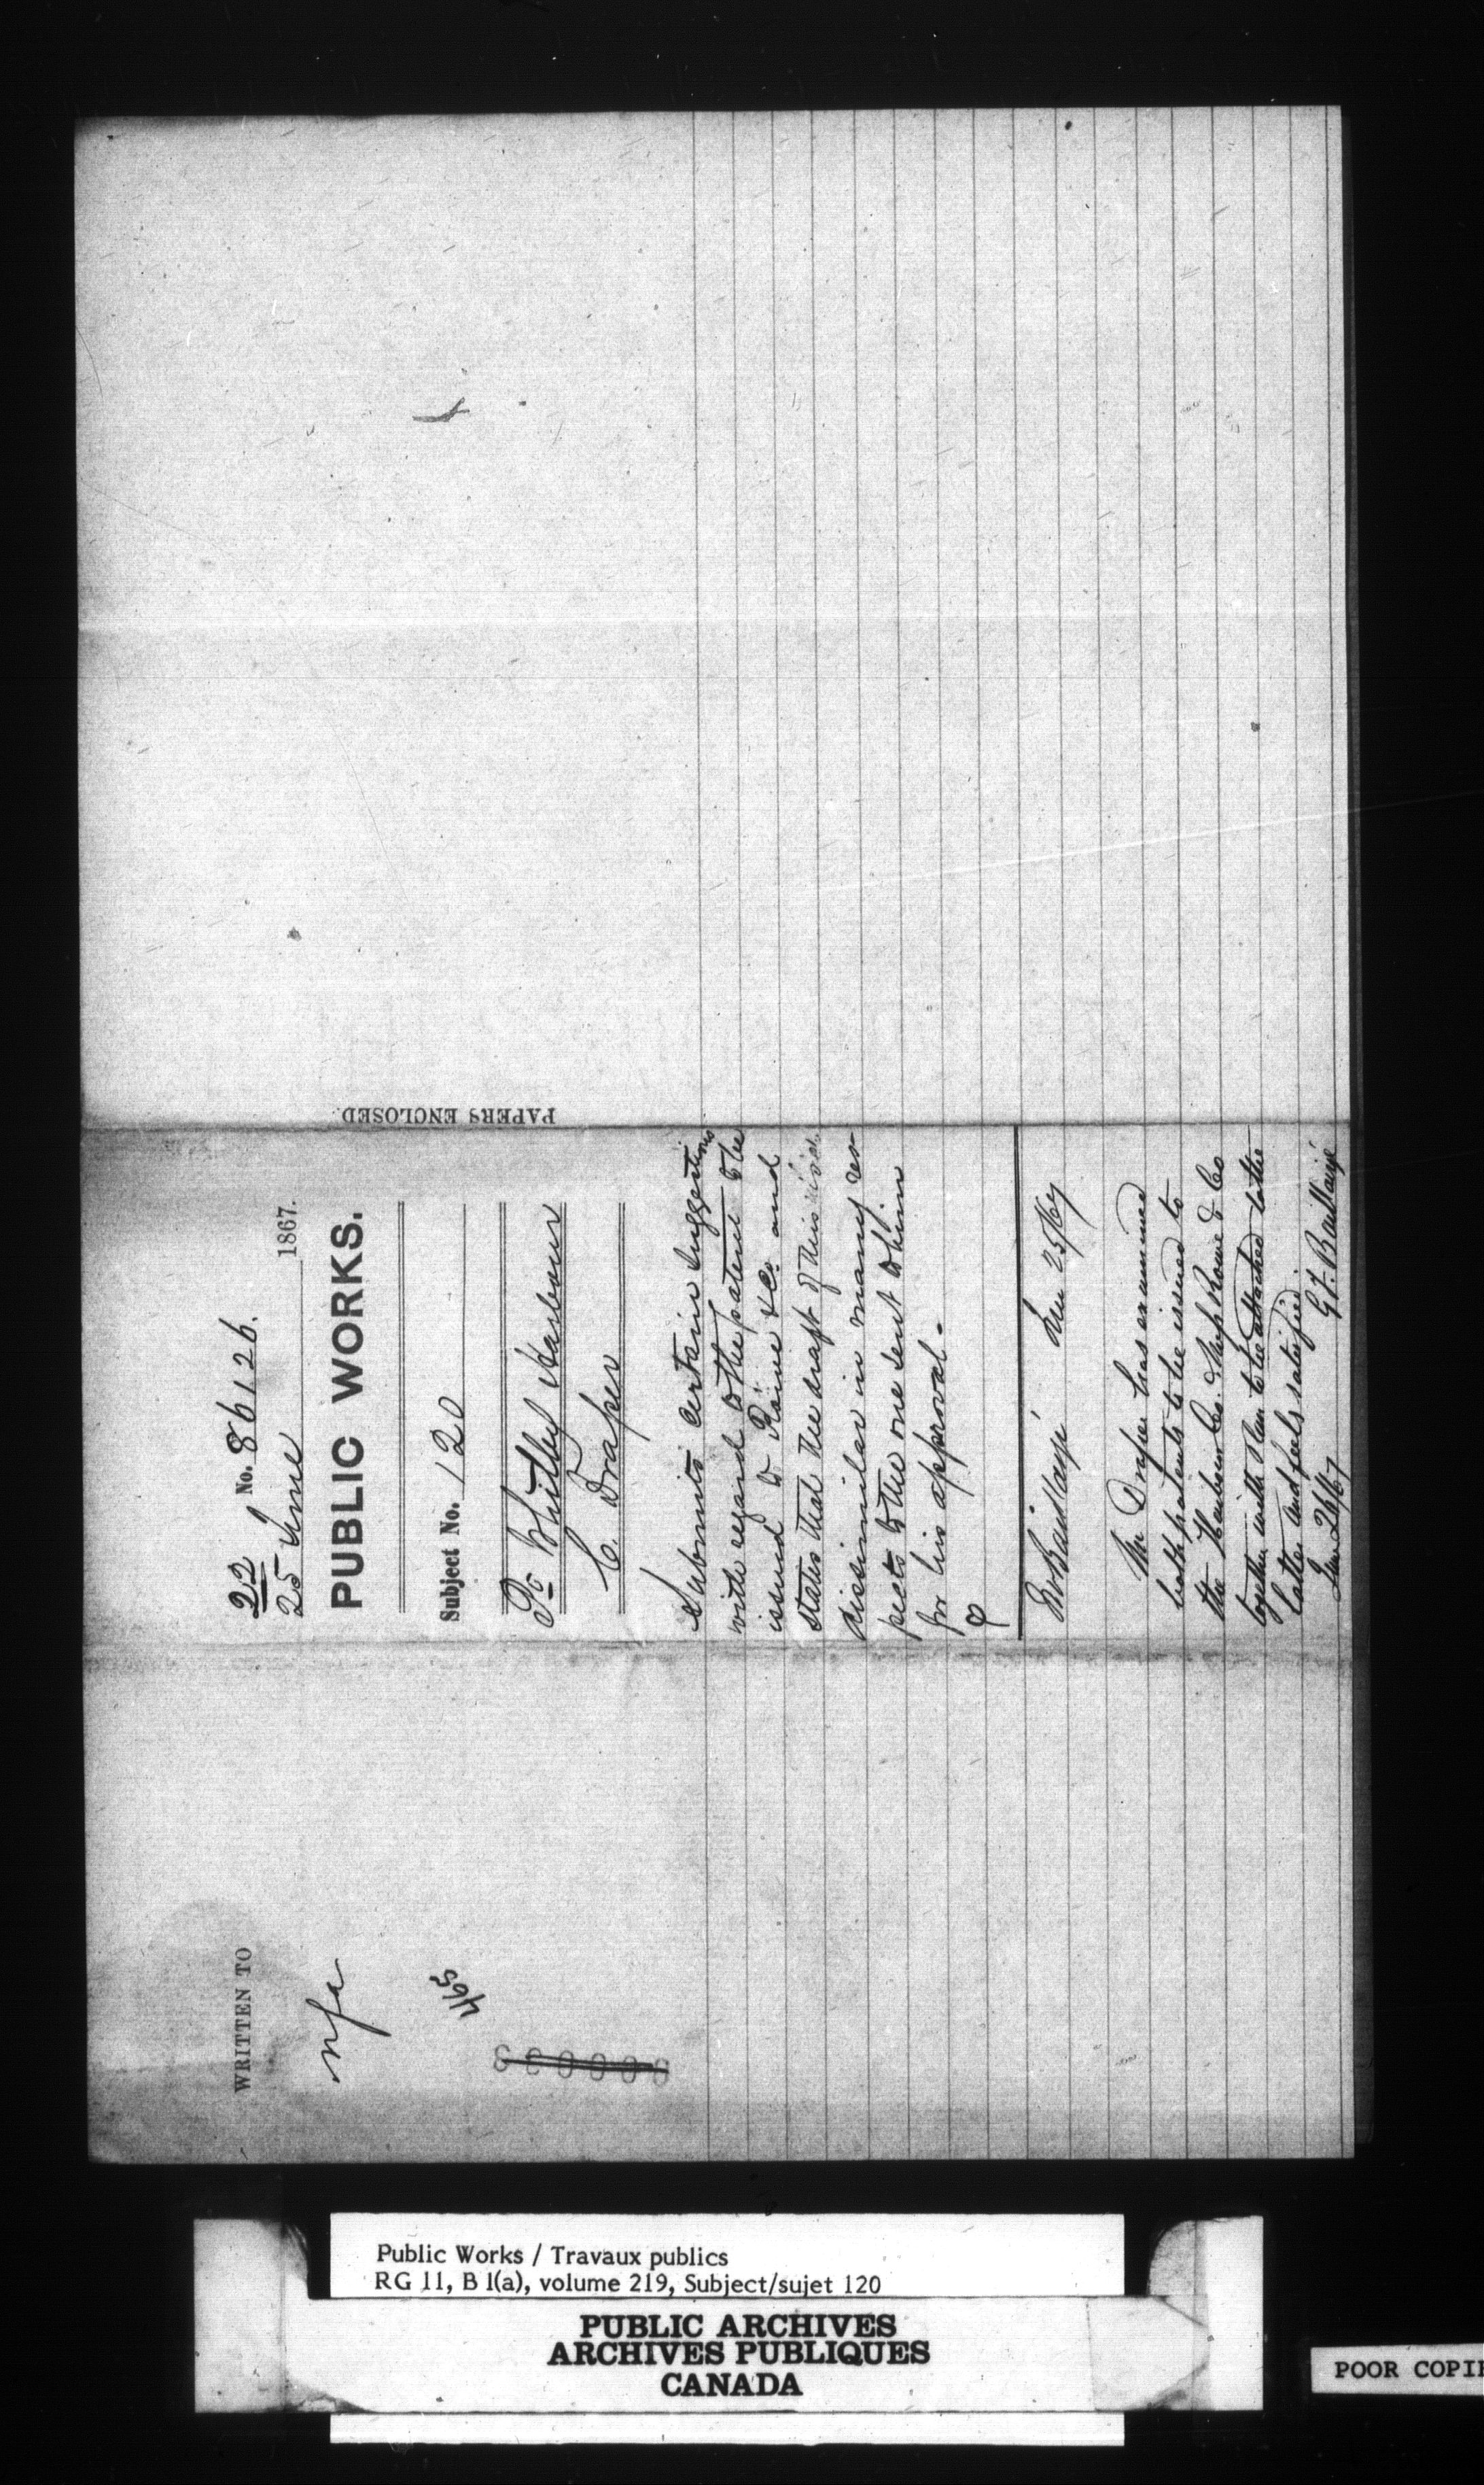 WRITTEN TO
nfa
465
22 No. 86126.
25 June 1867.
PUBLIC WORKS.
Subject No. 120
Pt Whitby Harbour
C. Draper
Submits certain suggestions
with regard to the patent to be
issued to Rowe & Co. and
states that the draft of this is
dissimilar in many res-
pects to the one sent to him
for his approval.
Mr Baillairgé June 25/67
Mr Draper has examined
both patents to be issued to
the Harbour Co. & Mess Rowe & Co
together with plan to be attached to the
latter and feels satisfied.
June 26/67 G.F. Baillairgé
PAPERS ENCLOSED.
Public Works / Travaux publics
RG 11, B 1(a), volume 219, Subject/sujet 120
PUBLIC ARCHIVES
ARCHIVES PUBLIQUES
CANADA
POOR COPI